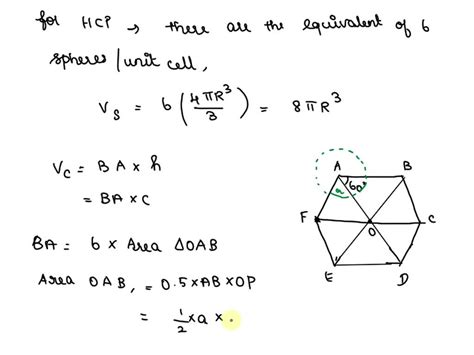 for HCP → there are the equivalent of 6
spheres / unit cell,
V_S = 6 (4πR³/3) = 8πR³
V_C = BA × h
= BA × C
BA = 6 × Area ΔOAB
Area OAB, = 0.5 × AB × OP
= 1/2 × a × .
A B
60°
a
F O C
E D